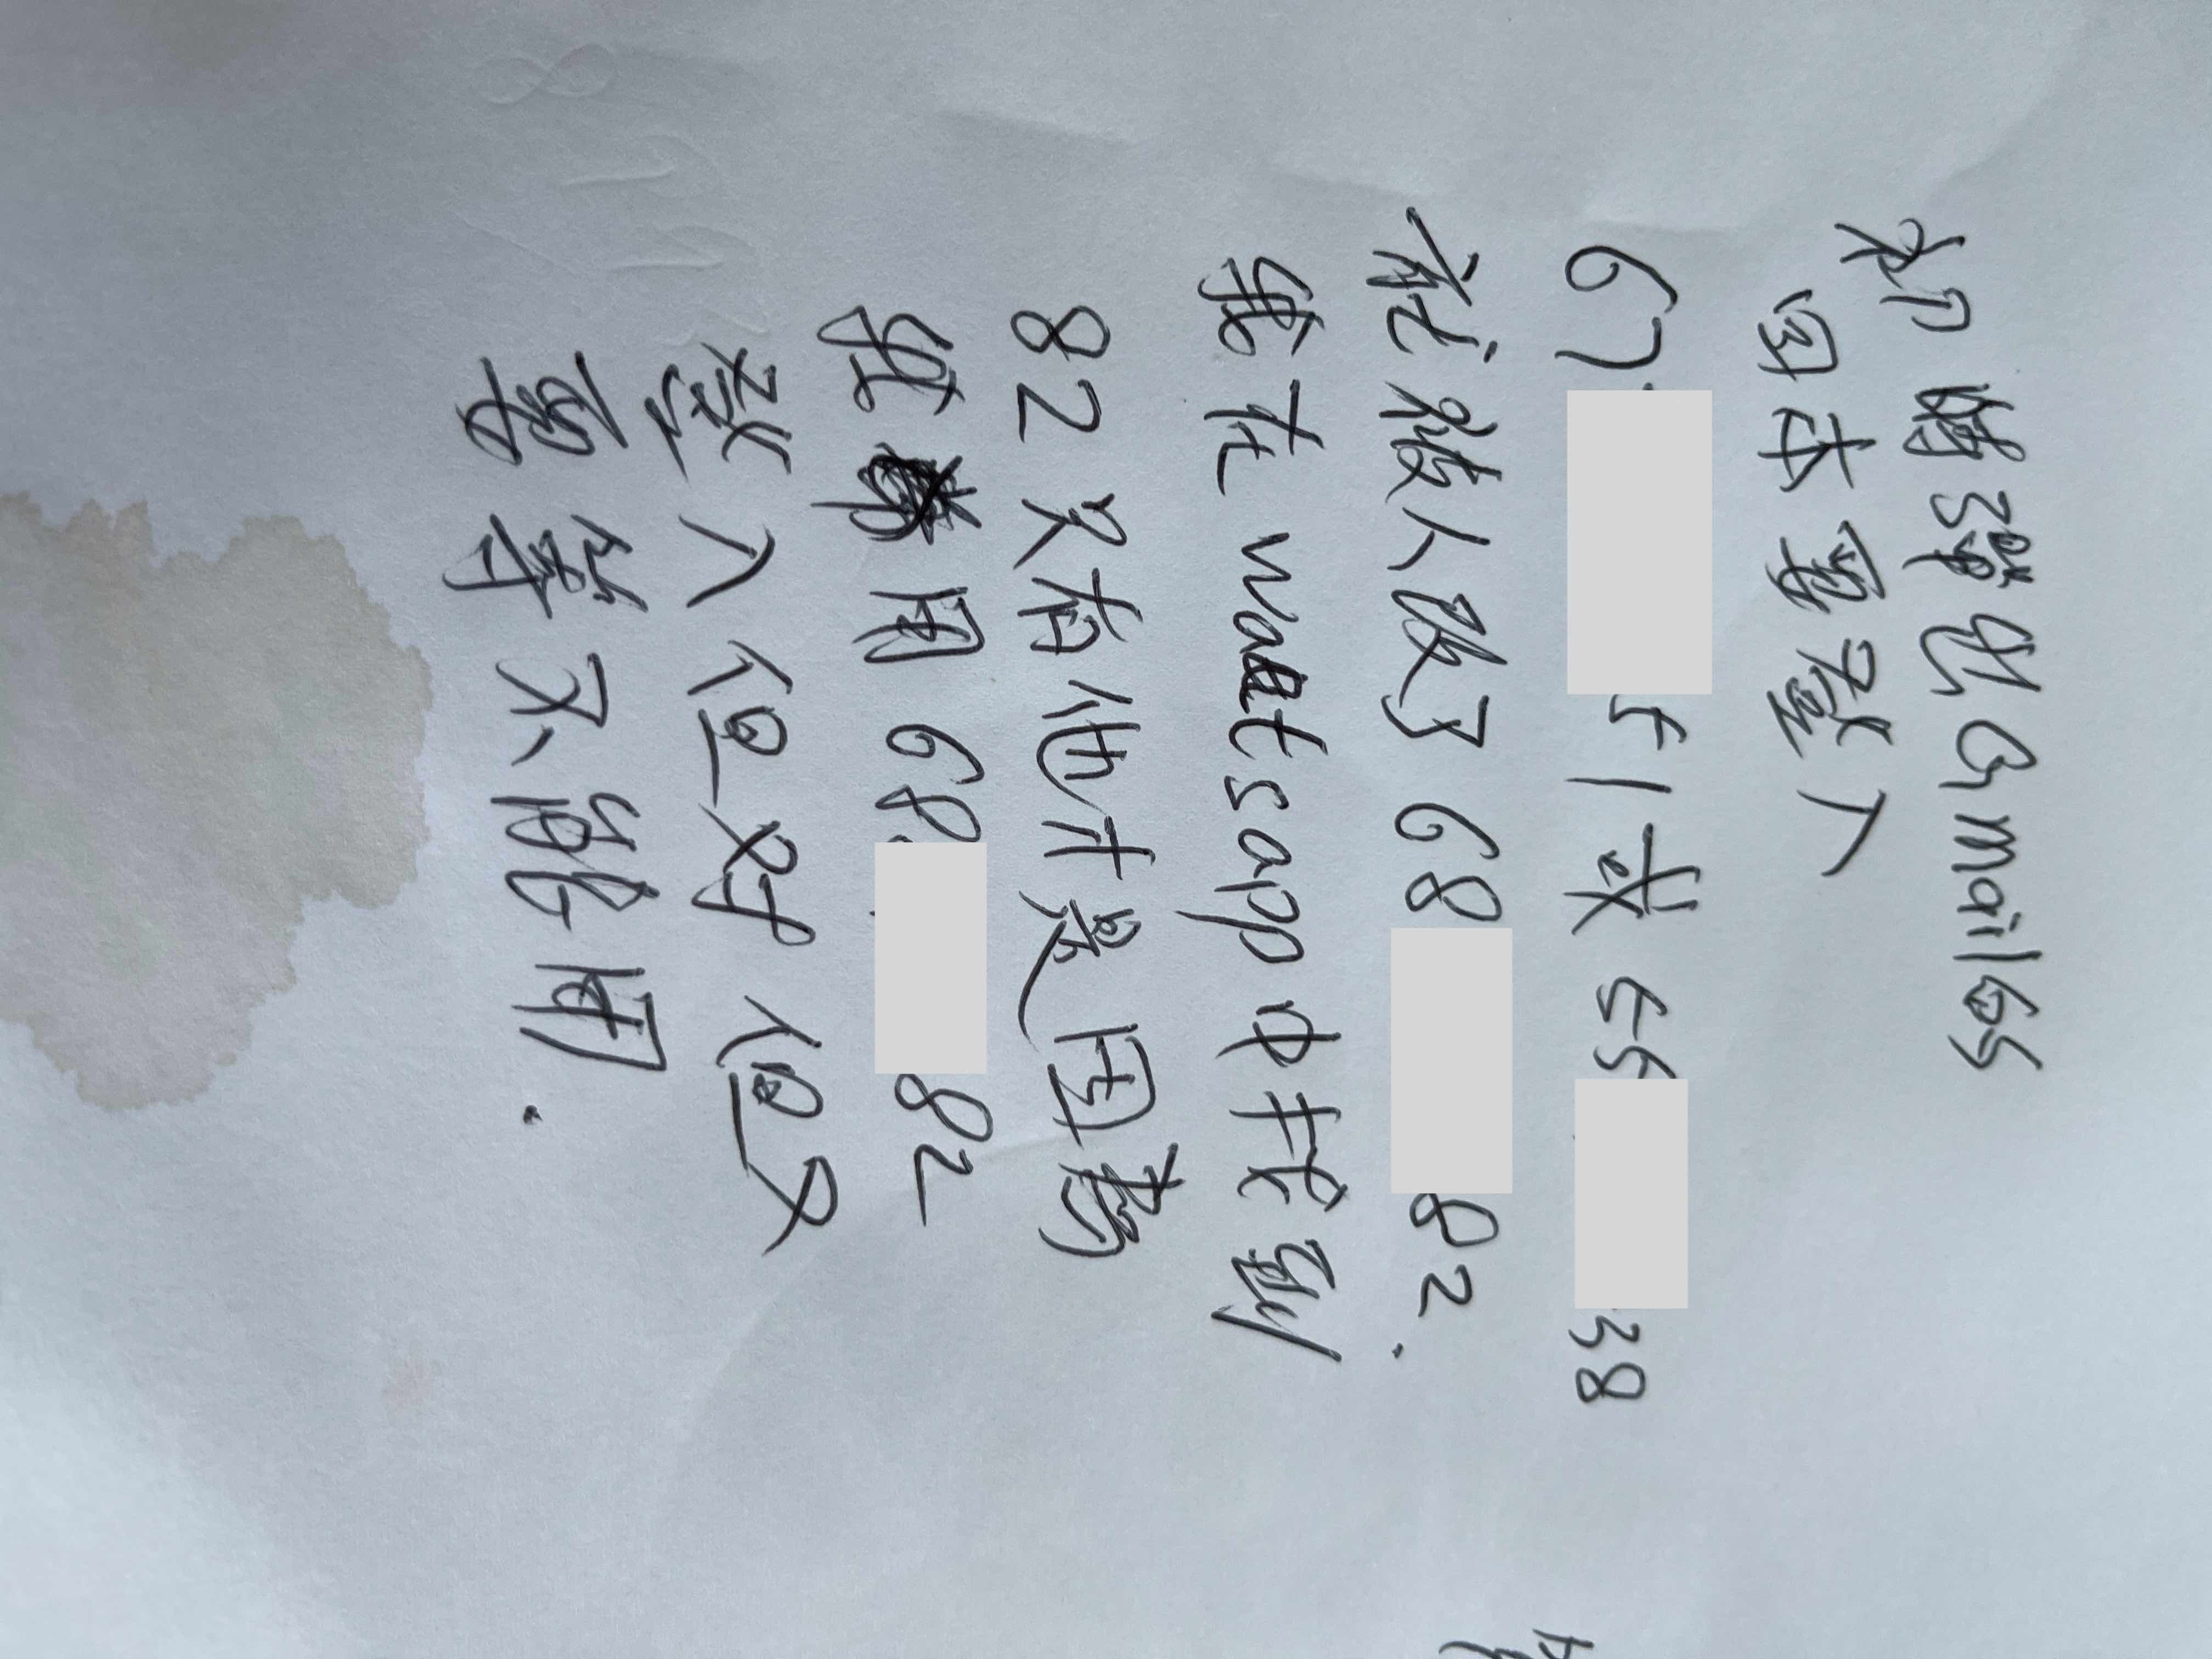 初時彈出Gmail65
因本要登入
67 51或 55 38
社被人改了68 82.
我在watsapp中找到
82只有他才是因为
我用68 82
登入但对但又
要等不能用.